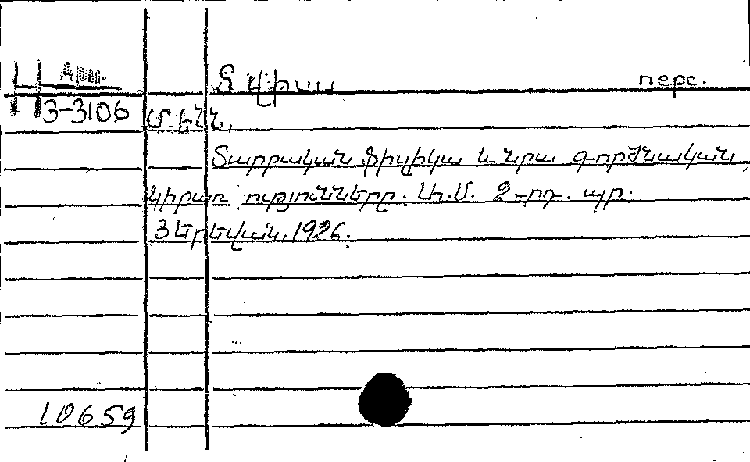 Арм. Ֆիզիկա перс.
Н
3-3106 ՄԵՆՆ,
Տարրական ֆիզիկա և նրա գործնական
կիրառությունները. Մ. 2-րդ. պր.
ՅԵրեվան. 1926.
10659